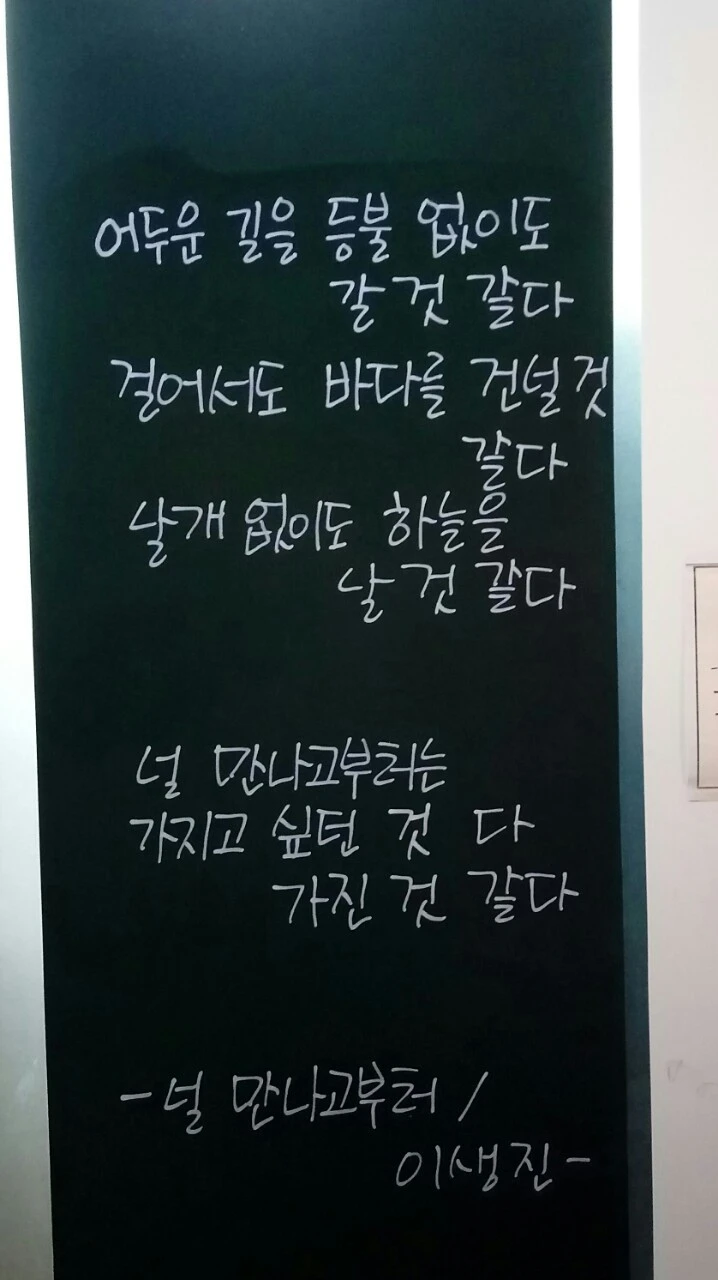 어두운 길을 등불 없이도
갈 것 같다
걸어서도 바다를 건널 것
같다
날개 없이도 하늘을
날 것 같다
널 만나고부터는
가지고 싶던 것 다
가진 것 같다
- 널 만나고부터 /
이생진 -